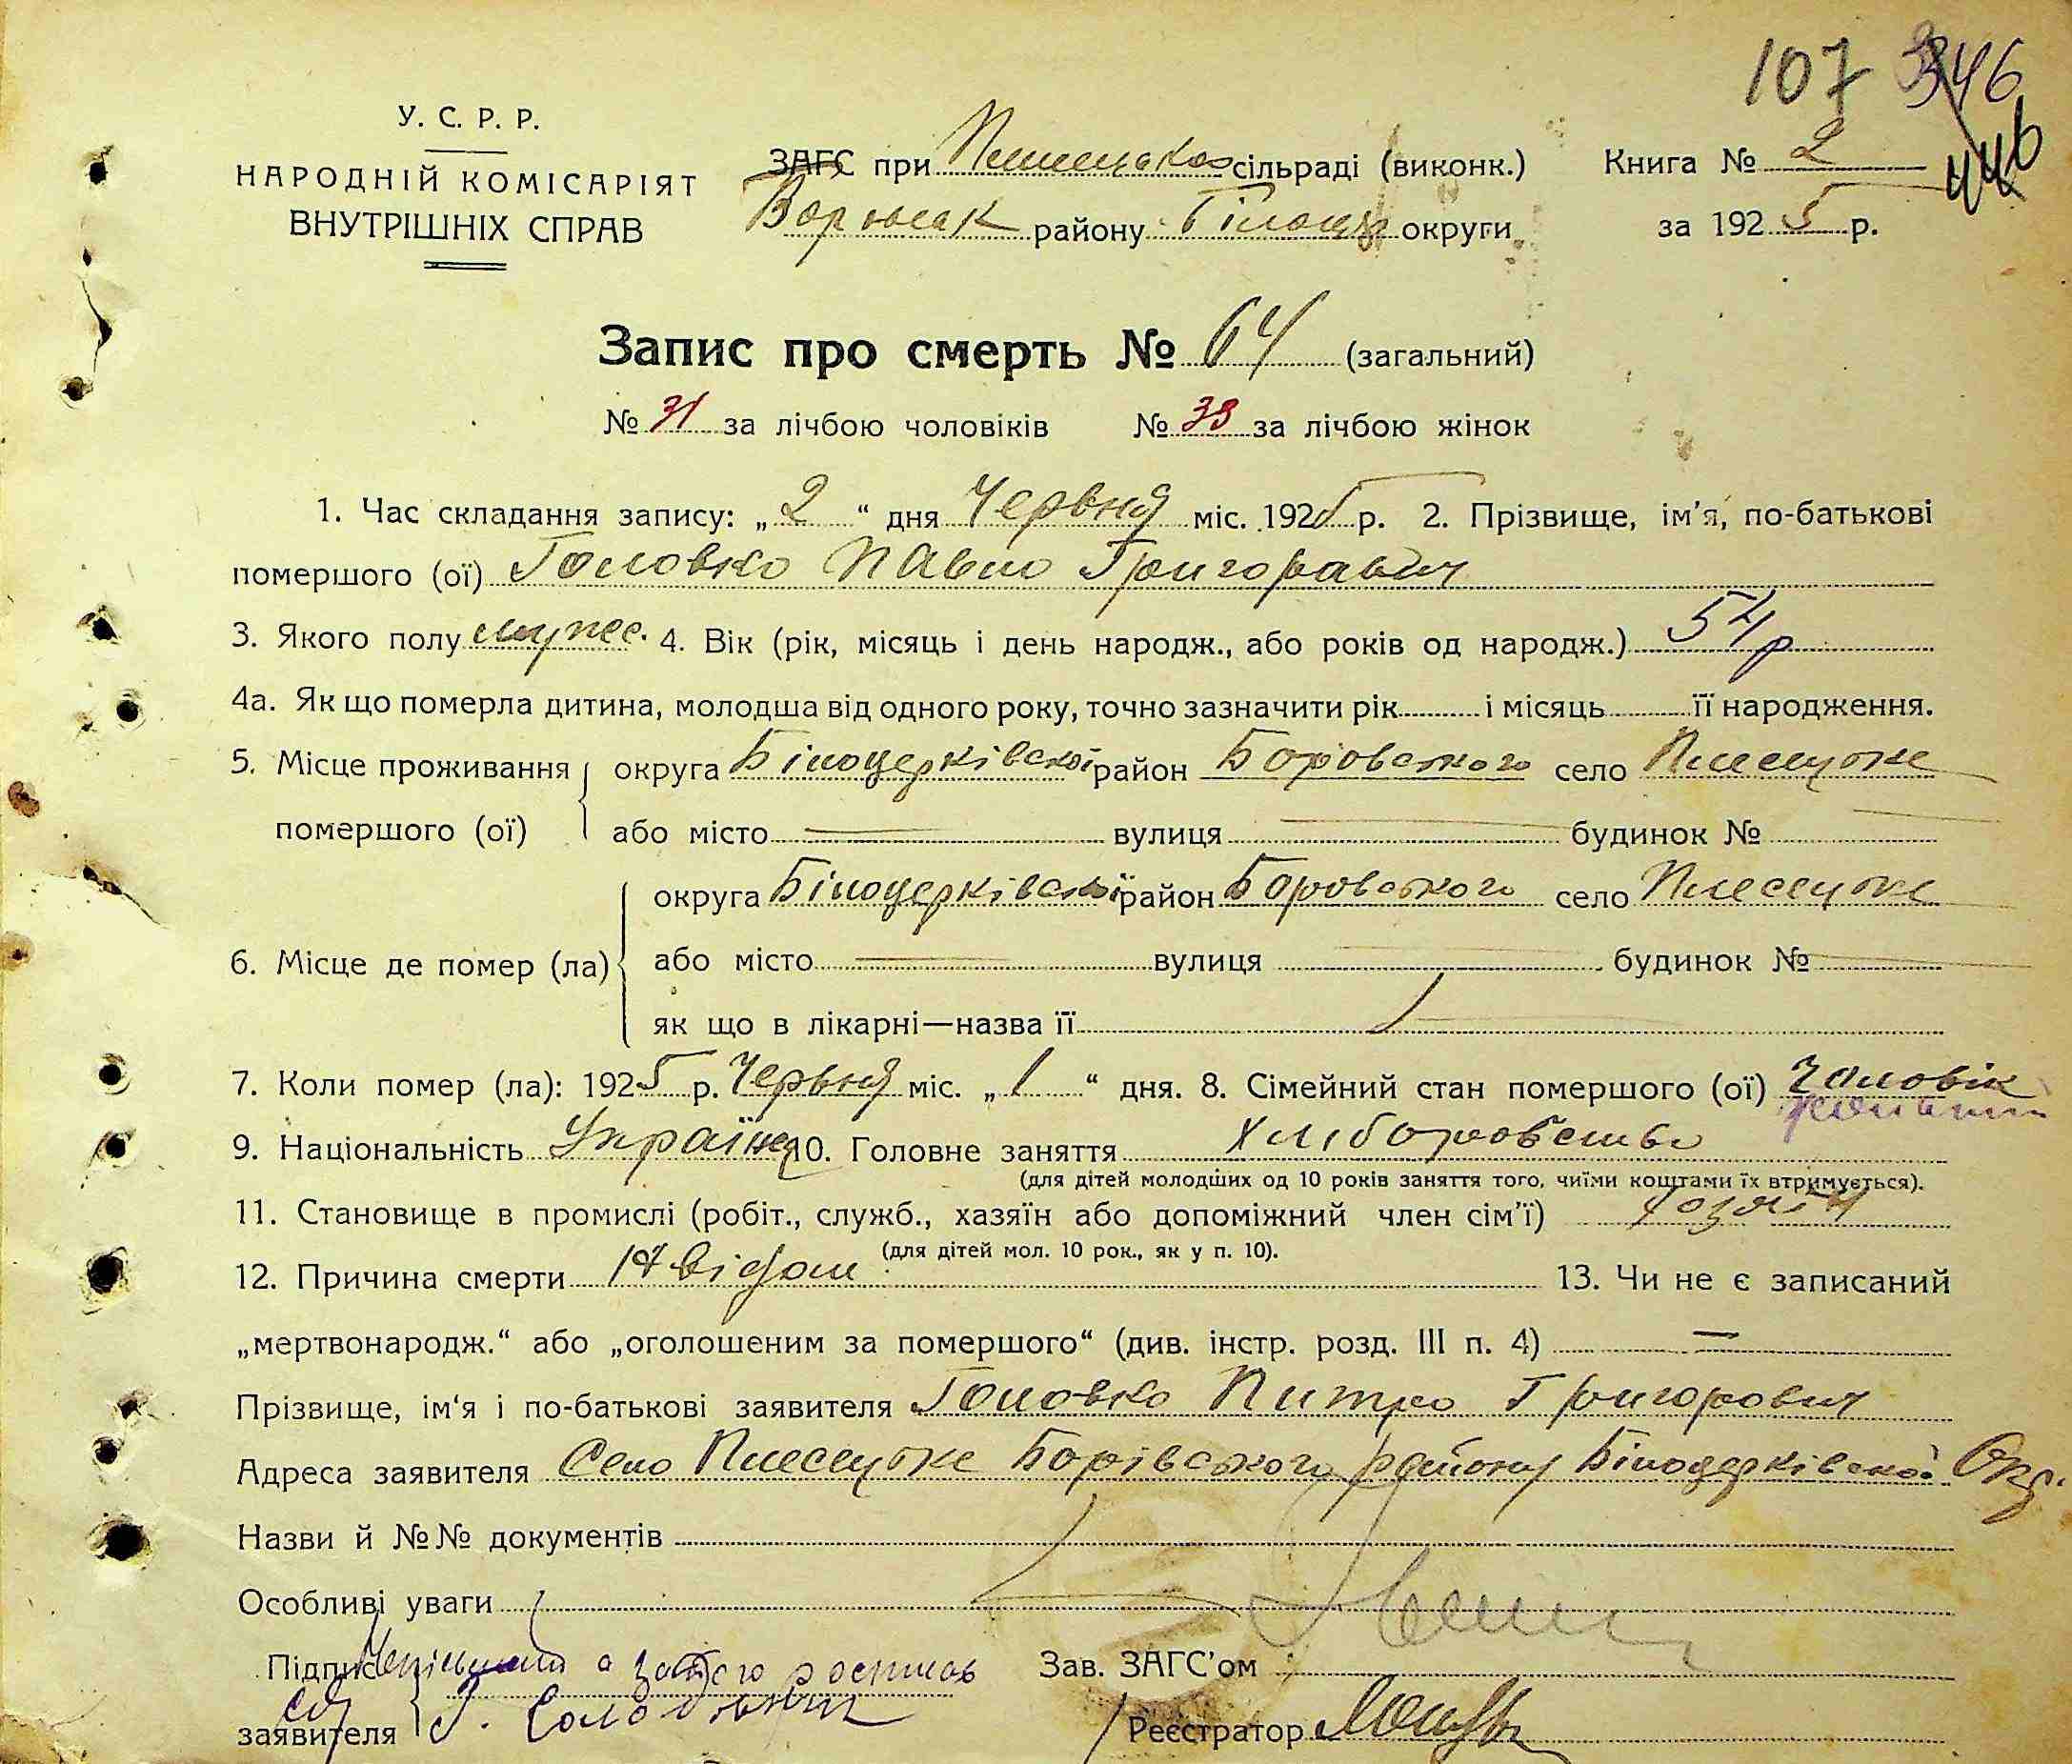 107 346
446
У. С. Р. Р.
НАРОДНІЙ КОМІСАРІЯТ
ВНУТРІШНІХ СПРАВ
ЗАГС при сільраді (виконк.)
району Білоцер округи
Книга № 2
за 1925 р.
Запис про смерть № 64 (загальний)
№ 31 за лічбою чоловіків № 33 за лічбою жінок
1. Час складання запису: „ 2 “ дня Червня міс. 1925 р. 2. Прізвище, ім’я, по-батькові
помершого (ої) Головко Павло Григорович
3. Якого полу мужес. 4. Вік (рік, місяць і день народж., або років од народж.) 54 р
4а. Як що померла дитина, молодша від одного року, точно зазначити рік і місяць її народження.
5. Місце проживання округа Білоцерківської район Боровського село Плесецке
помершого (ої) або місто вулиця будинок №
округа Білоцерківської район Боровського село Плесецке
6. Місце де помер (ла) або місто вулиця будинок №
як що в лікарні—назва її
7. Коли помер (ла): 1925 р. Червня міс. „ 1 “ дня. 8. Сімейний стан помершого (ої) Чоловік
9. Національність Україн 10. Головне заняття Хліборобство
(для дітей молодших од 10 років заняття того, чиїми коштами їх втримується).
11. Становище в промислі (робіт., служб., хазяїн або допоміжний член сім’ї) хозяїн
(для дітей мол. 10 рок., як у п. 10).
12. Причина смерти 13. Чи не є записаний
„мертвонародж.“ або „оголошеним за помершого“ (див. інстр. розд. III п. 4) —
Прізвище, ім‘я і по-батькові заявителя Головко Питро Григорович
Адреса заявителя Село Плесецке Борівського району Білоцерківської Окр.
Назви й №№ документів
Особливі уваги
Підпис а за його росписав
заявителя Зав. ЗАГС’ом
Реєстратор